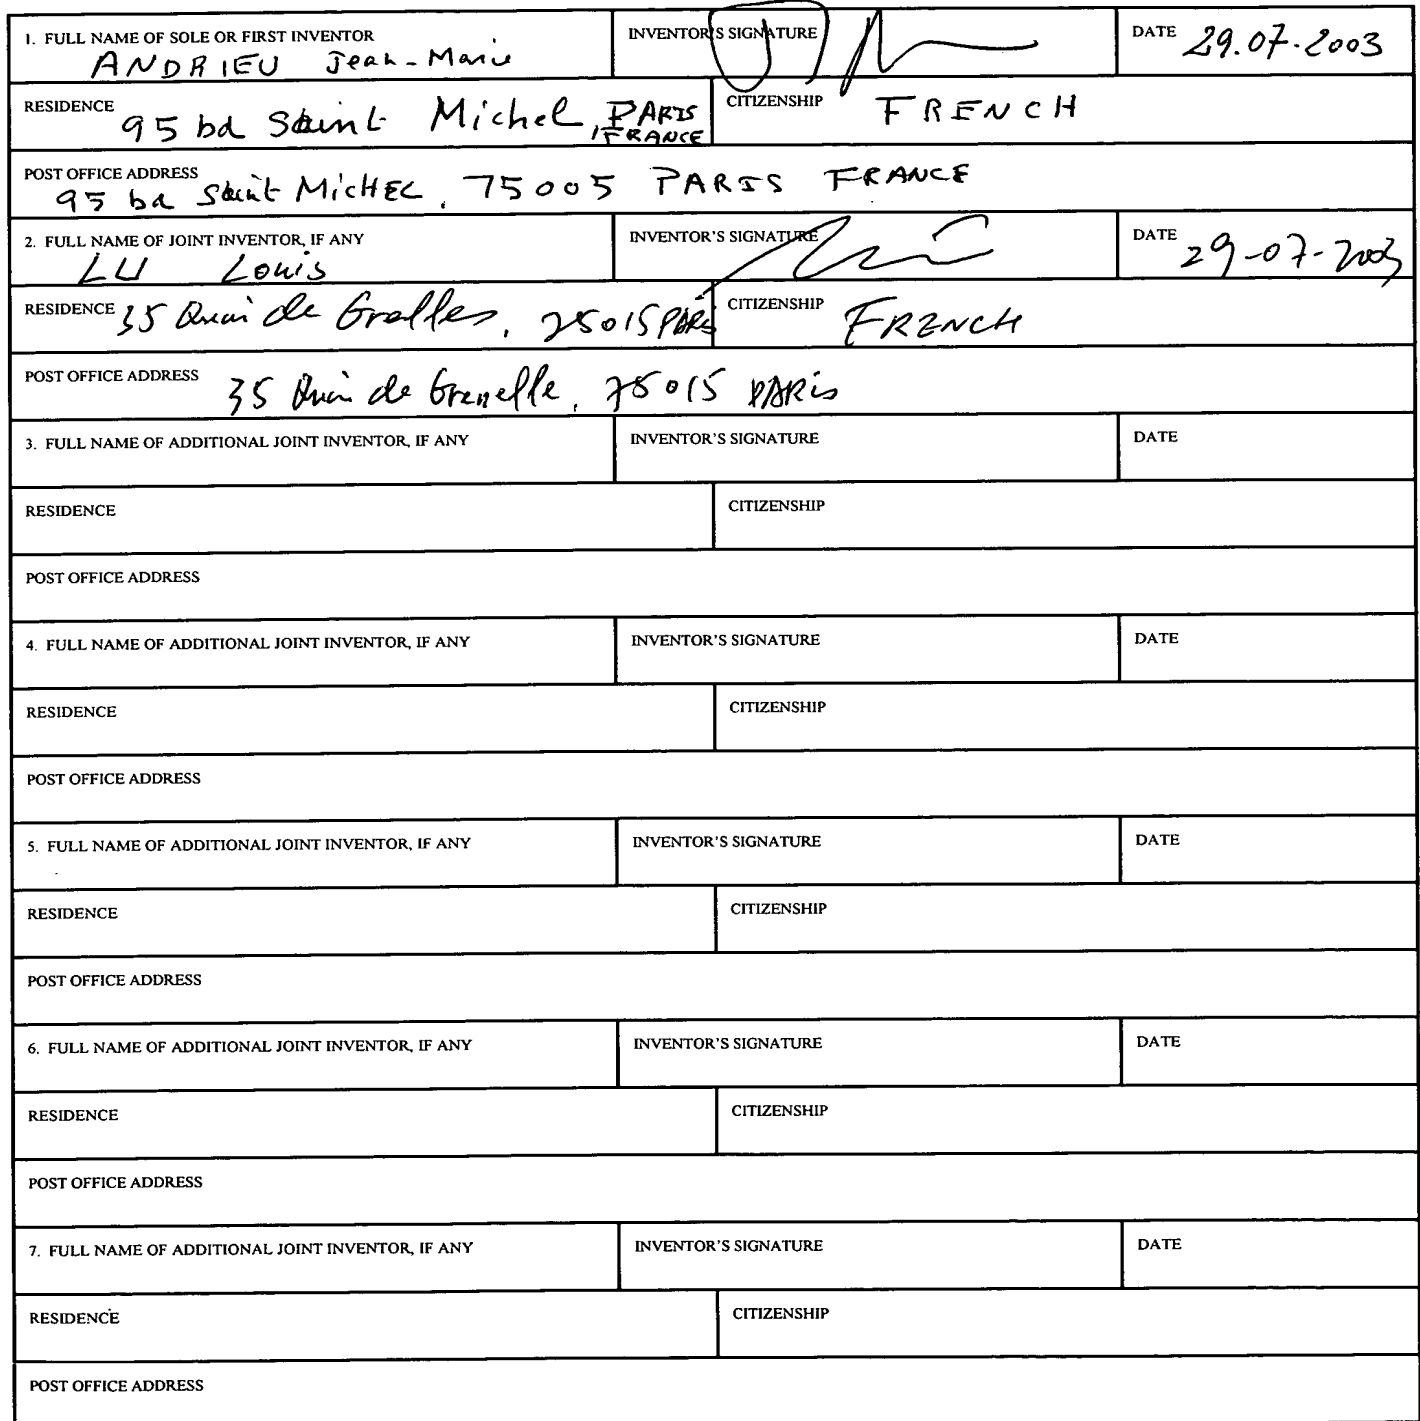 1. FULL NAME OF SOLE OR FIRST INVENTOR INVENTOR'S SIGNATURE DATE 29.07.2003
ANDRIEU Jean-Marie
RESIDENCE 95 bd Saint Michel, PARIS CITIZENSHIP FRENCH
, FRANCE
POST OFFICE ADDRESS
95 bd Saint MICHEL, 75005 PARIS FRANCE
2. FULL NAME OF JOINT INVENTOR, IF ANY INVENTOR'S SIGNATURE DATE 29-07-2003
LU Louis
RESIDENCE 35 Quai de 75015 PARIS CITIZENSHIP FRENCH
POST OFFICE ADDRESS 35 Quai de Grenelle, 75015 PARis
3. FULL NAME OF ADDITIONAL JOINT INVENTOR, IF ANY INVENTOR'S SIGNATURE DATE
RESIDENCE CITIZENSHIP
POST OFFICE ADDRESS
4. FULL NAME OF ADDITIONAL JOINT INVENTOR, IF ANY INVENTOR'S SIGNATURE DATE
RESIDENCE CITIZENSHIP
POST OFFICE ADDRESS
5. FULL NAME OF ADDITIONAL JOINT INVENTOR, IF ANY INVENTOR'S SIGNATURE DATE
RESIDENCE CITIZENSHIP
POST OFFICE ADDRESS
6. FULL NAME OF ADDITIONAL JOINT INVENTOR, IF ANY INVENTOR'S SIGNATURE DATE
RESIDENCE CITIZENSHIP
POST OFFICE ADDRESS
7. FULL NAME OF ADDITIONAL JOINT INVENTOR, IF ANY INVENTOR'S SIGNATURE DATE
RESIDENCE CITIZENSHIP
POST OFFICE ADDRESS